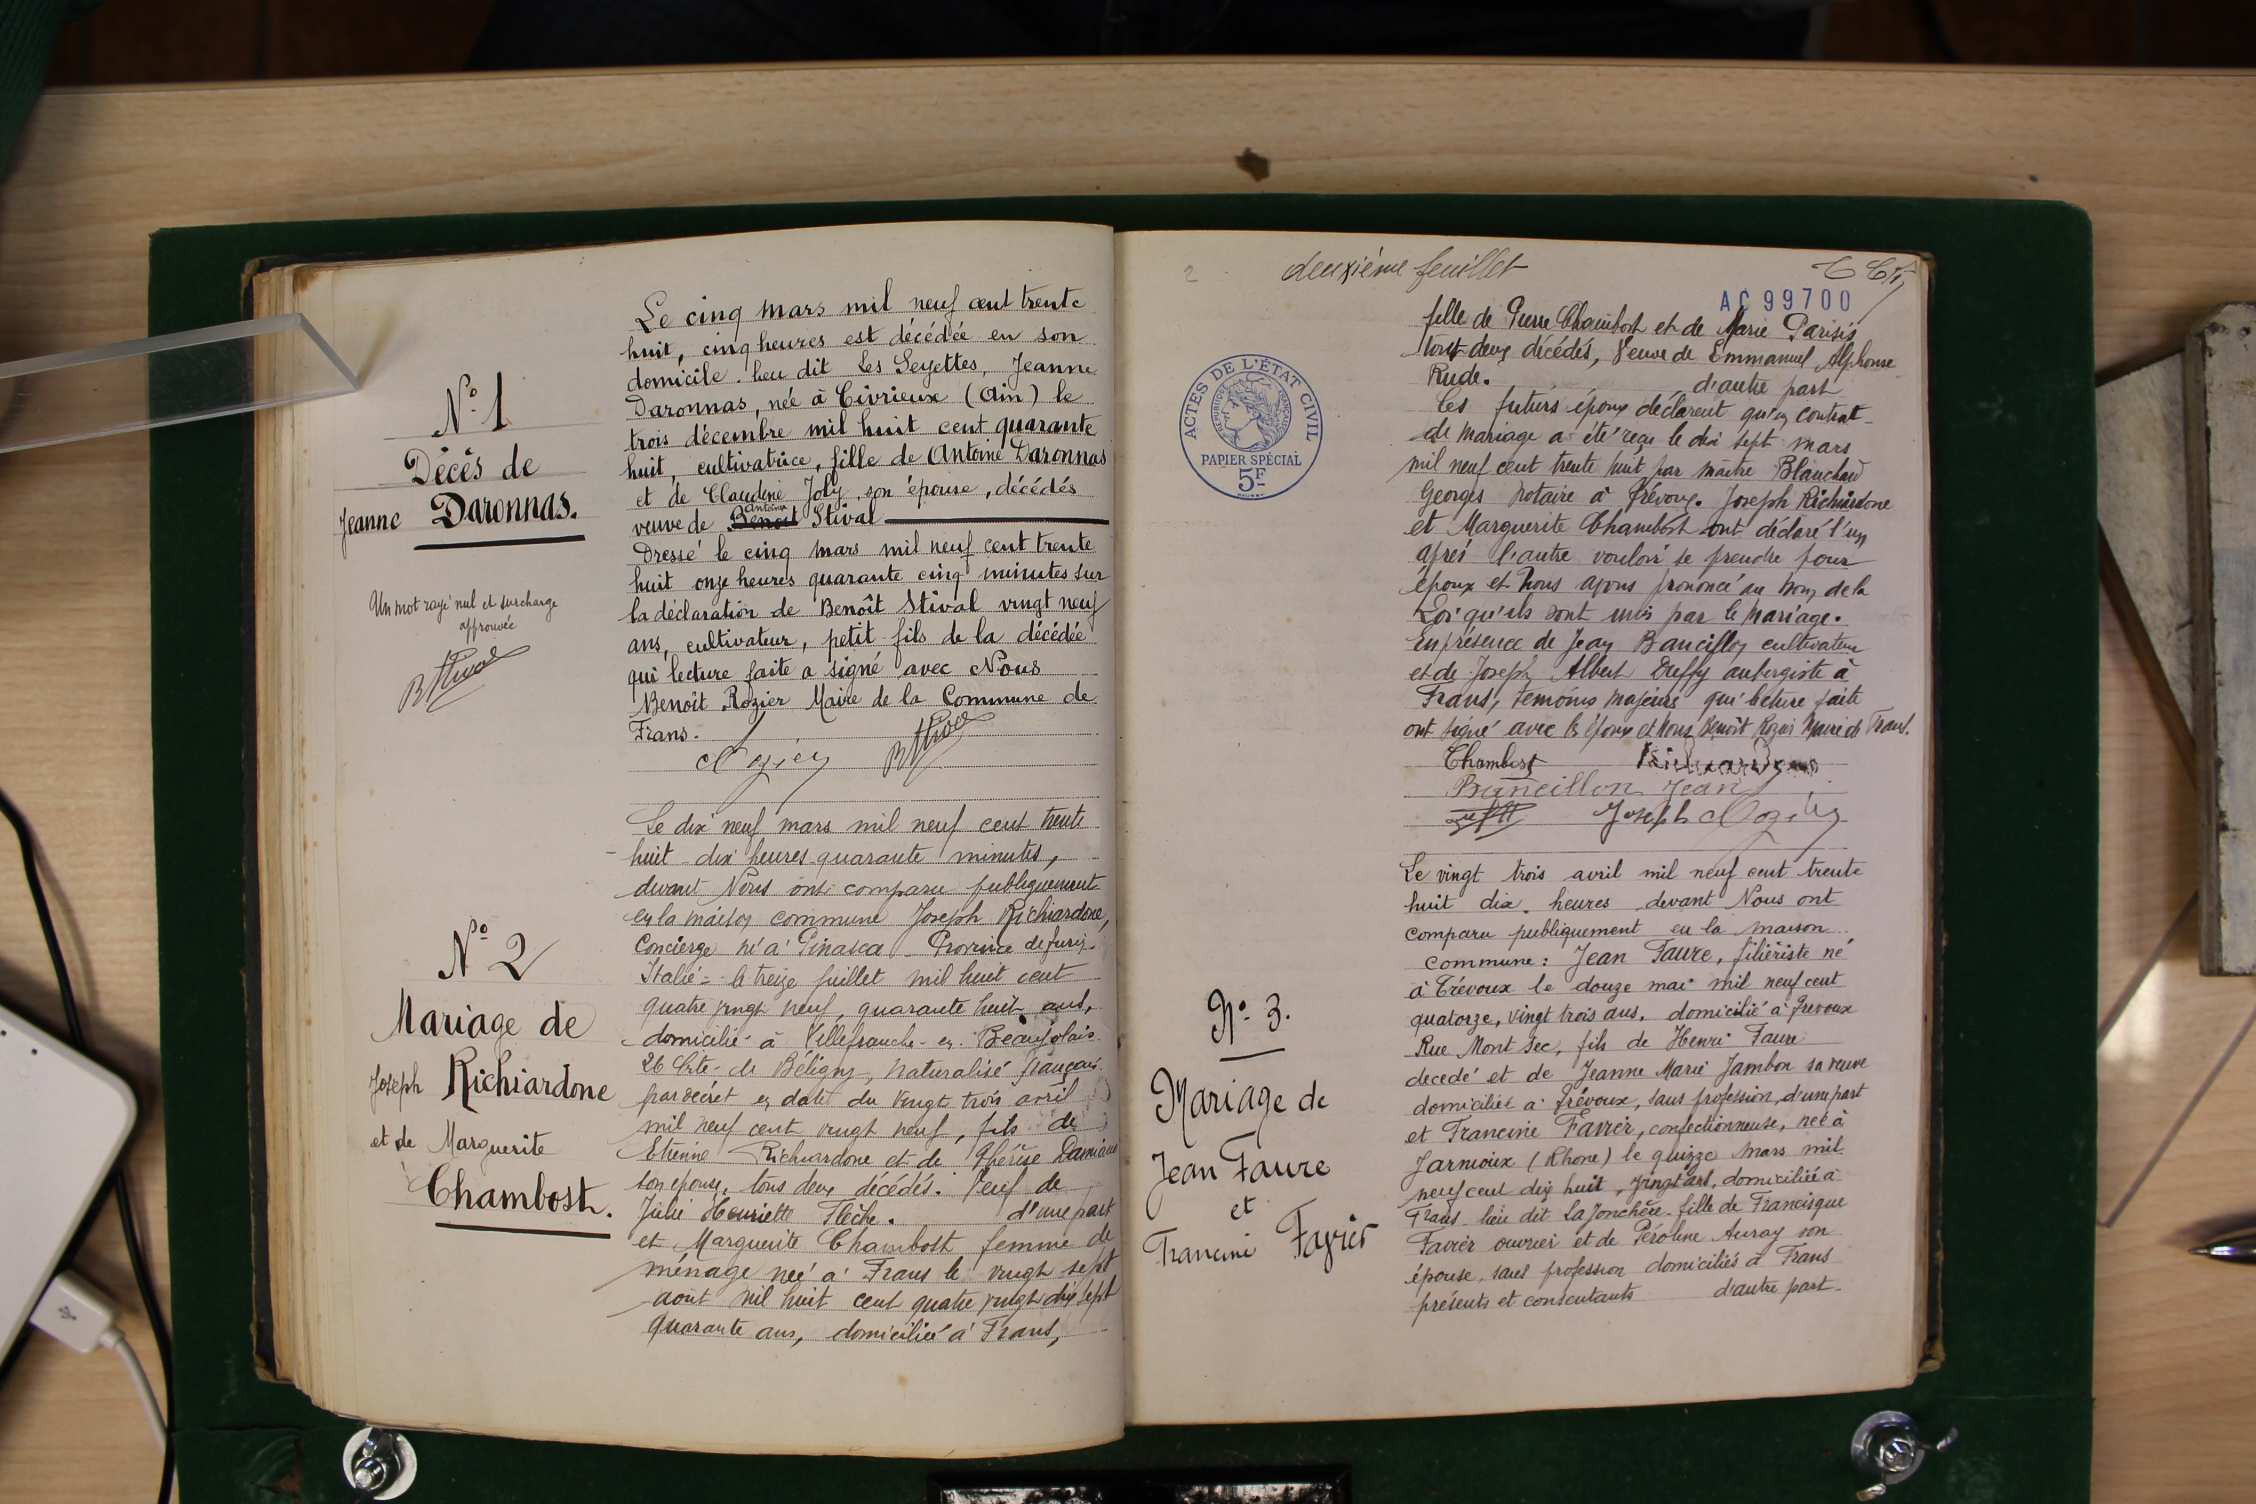 N° 1
Décès de
Jeanne Daronnas.
Un mot rayé nul et surcharge
approuvée
BStival
Le cinq mars mil neuf cent trente
huit, cinq heures est décédée en son
domicile lieu dit Les Seyettes, Jeanne
Daronnas, née à Civrieux (Ain) le
trois décembre mil huit cent quarante
huit, cultivatrice, fille de Antoine Daronnas
et de Claudine Joly, son épouse, décédés
Antoine
veuve de Benoit Stival
Dressé le cinq mars mil neuf cent trente
huit onze heures quarante cinq minutes sur
la déclaration de Benoît Stival vingt neuf
ans, cultivateur, petit-fils de la décédée
qui lecture faite a signé avec Nous
Benoît Rozier Maire de la Commune de
Frans.
Rozier BStival
N° 2
Mariage de
Joseph Richiardone
et de Marguerite
Chambost.
Le dix neuf mars mil neuf cent trente
huit dix heures quarante minutes,
devant Nous ont comparu publiquement
en la maison commune Joseph Richiardone,
Concierge né à Pinasca Province de Turin
Italie - le treize juillet mil huit cent
quatre vingt neuf, quarante huit ans,
domicilié à Villefranche-en-Beaujolais
26 Rte de Béligny, naturalisé français
par décret en date du vingt trois avril
mil neuf cent vingt neuf, fils de
Etienne Richiardone et de Thérèse Damiano
son épouse, tous deux décédés. Veuf de
Julie Henriette Flèche. d'une part
et Marguerite Chambost femme de
ménage née à Frans le vingt sept
août mil huit cent quatre vingt dix sept
quarante ans, domiciliée à Frans,
2
deuxième feuillet
AC 99700
ACTES DE L'ÉTAT CIVIL
RÉPUBLIQUE FRANÇAISE
PAPIER SPÉCIAL
5F
fille de Pierre Chambost et de Marie Parisis
tout deux décédés, Veuve de Emmanuel Alphonse
Rude. d'autre part
Les futurs époux déclarent qu'un contrat
de mariage a été reçu le dix sept mars
mil neuf cent trente huit par maître Blanchard
Georges notaire à Trévoux. Joseph Richiardone
et Marguerite Chambost ont déclaré l'un
après l'autre vouloir se prendre pour
époux et Nous avons prononcé au nom de la
Loi qu'ils sont unis par le mariage.
En présence de Jean Bancillon cultivateur
et de Joseph Albert Duffy aubergiste à
Frans, témoins majeurs qui lecture faite
ont signé avec les époux et Nous Benoît Rozier Maire de Frans.
Chambost Richiardone
Bancillon Jean
Joseph Rozier
N° 3.
Mariage de
Jean Faure
et
Francine Favier
Le vingt trois avril mil neuf cent trente
huit dix heures devant Nous ont
comparu publiquement en la maison
commune : Jean Faure, filiériste né
à Trévoux le douze mai mil neuf cent
quatorze, vingt trois ans, domicilié à Trévoux
Rue Mont Sec, fils de Henri Faure
decedé et de Jeanne Marie Jambon sa veuve
domiciliée à Trévoux, sans profession, d'une part
et Francine Favier, confectionneuse, née à
Jarnioux (Rhone) le quinze mars mil
neuf cent dix huit, vingt ans, domiciliée à
Frans lieu dit La Jonchère fille de Francisque
Favier ouvrier et de Péroline Auray son
épouse, sans profession domiciliés à Frans
présents et consentants d'autre part.